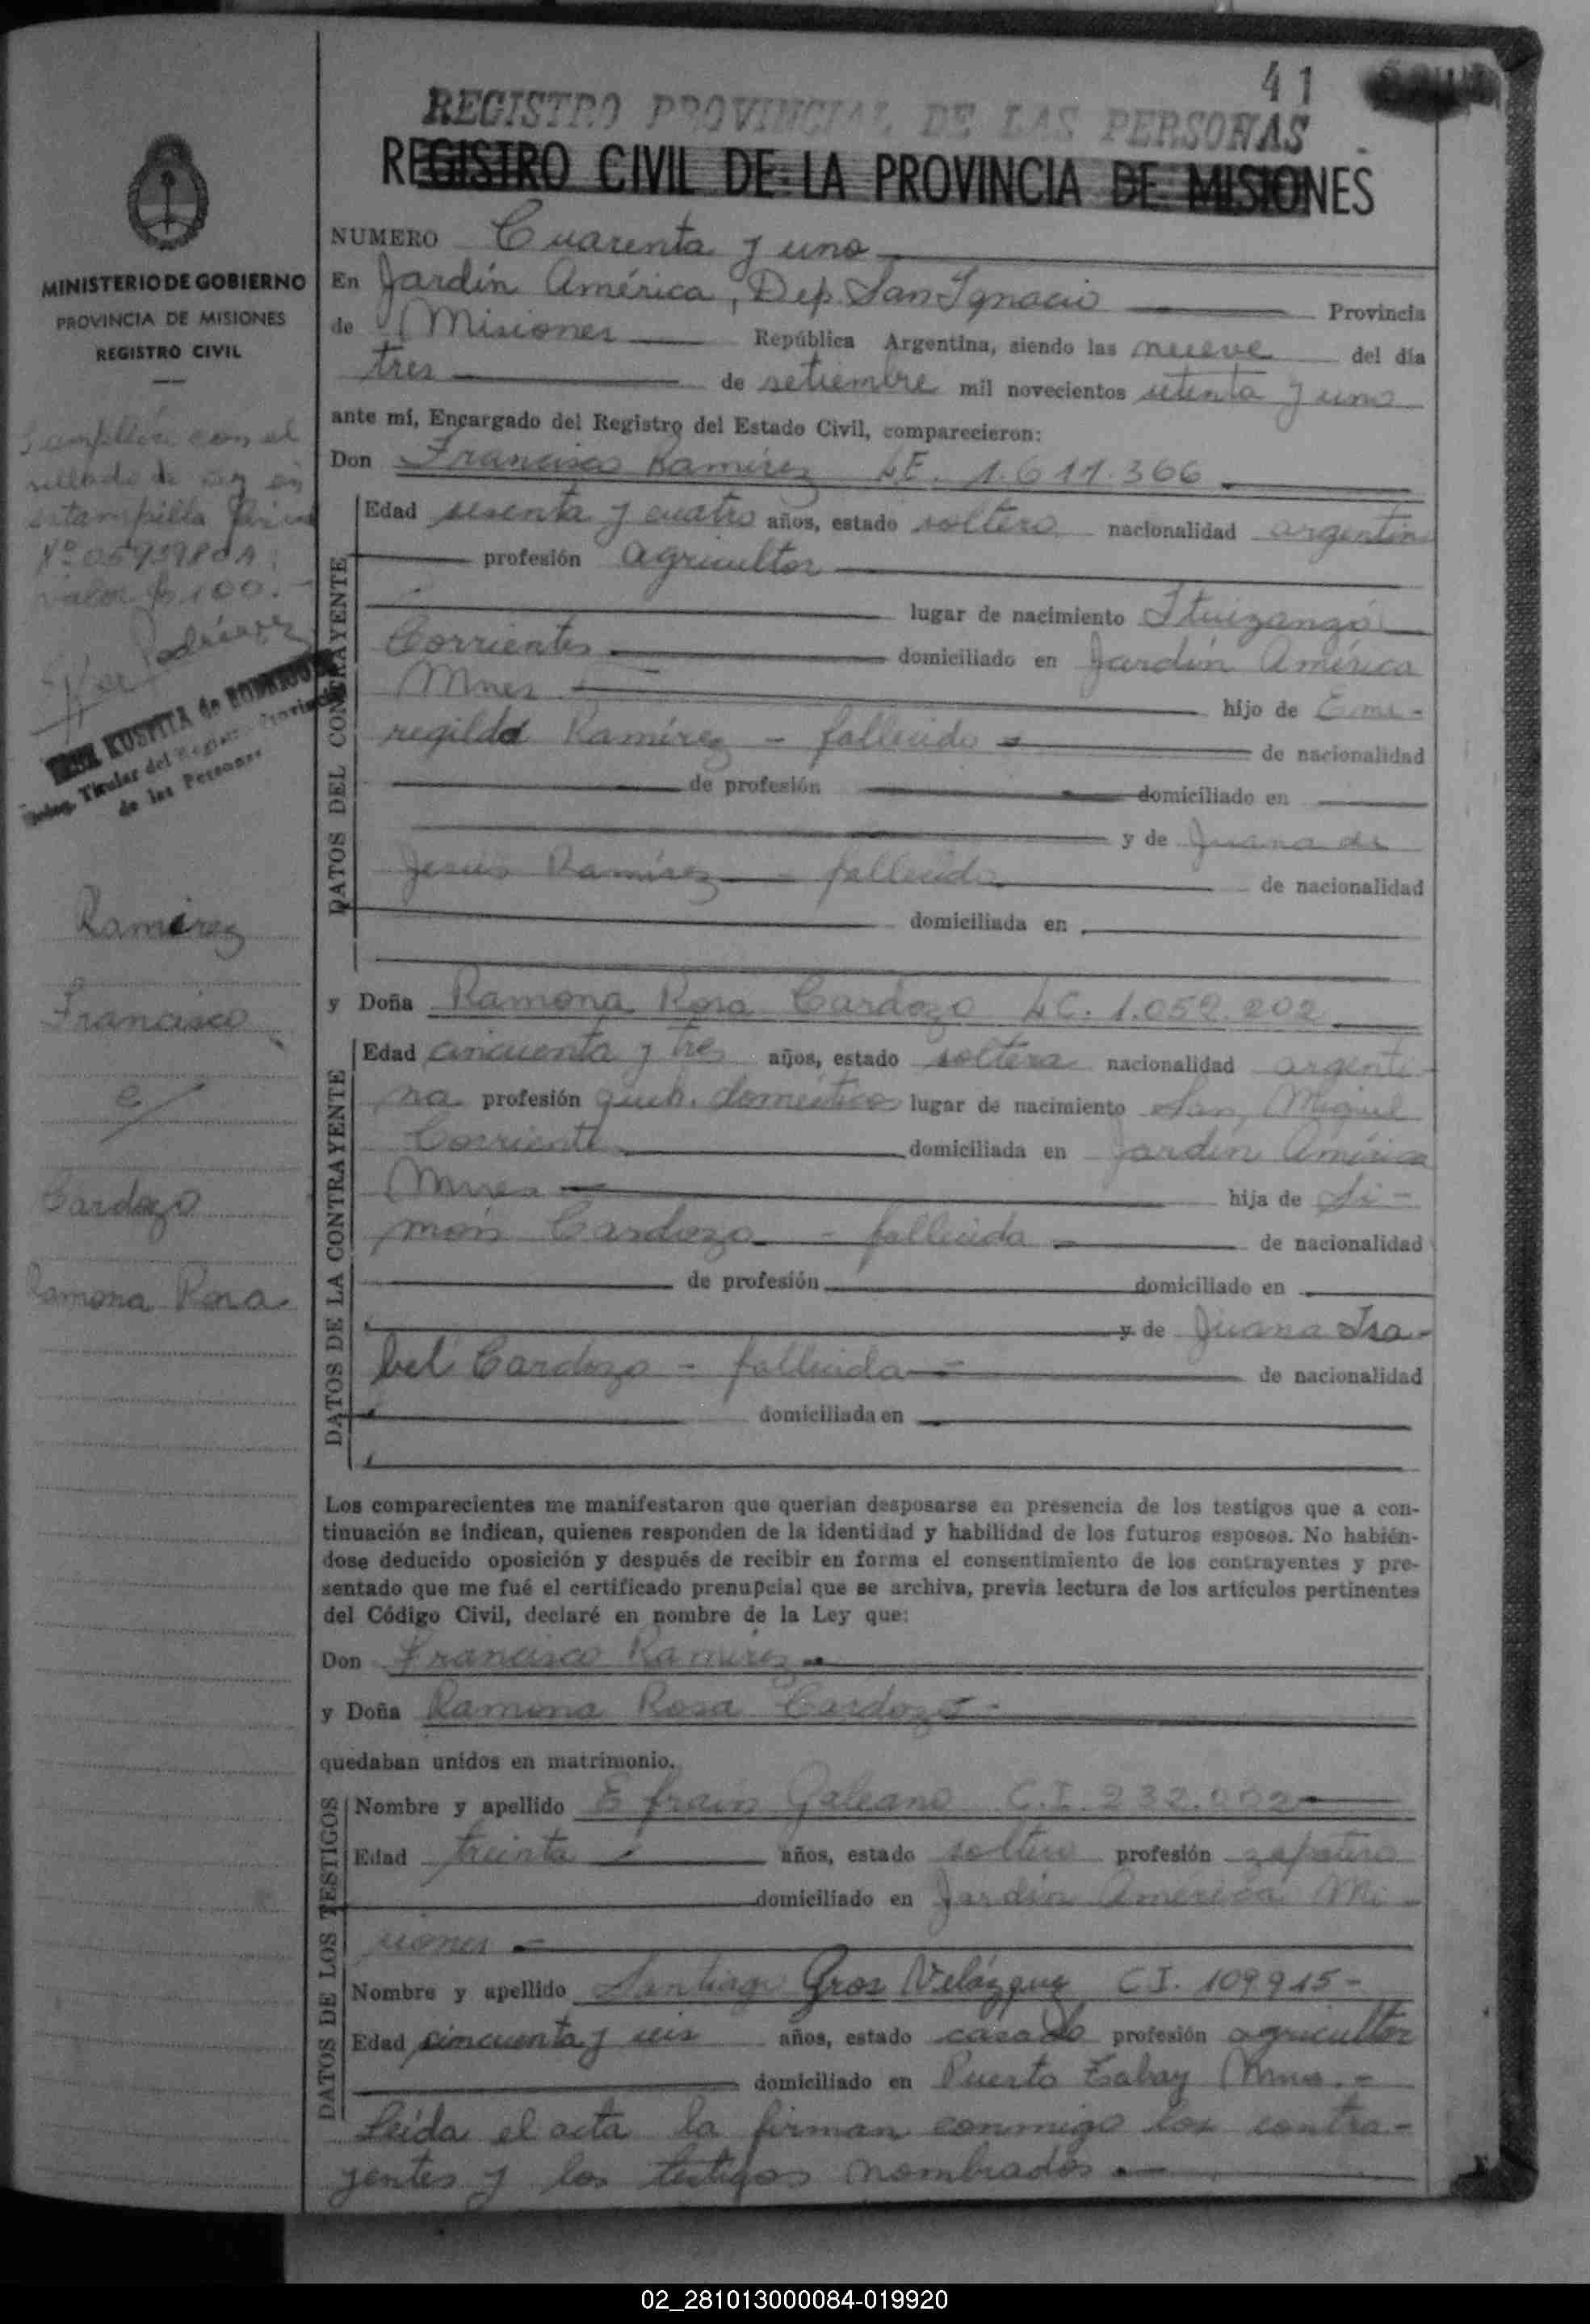 41
REGISTRO PROVINCIAL DE LAS PERSONAS
REGISTRO CIVIL DE LA PROVINCIA DE MISIONES
MINISTERIO DE GOBIERNO
PROVINCIA DE MISIONES
REGISTRO CIVIL
con el
sellado de
estampilla
valor $ 100.-
KUSPITA de RODRIGUEZ
Titular del Registro Provincial
de las Personas
Ramírez
Francisco
c/
Cardozo
Ramona Rosa
NUMERO Cuarenta y uno
En Jardín América, Dep. San Ignacio Provincia
de Misiones República Argentina, siendo las nueve del día
tres de setiembre mil novecientos setenta y uno
ante mí, Encargado del Registro del Estado Civil, comparecieron:
Don Francisco Ramírez L.E. 1.611.366
DATOS DEL CONTRAYENTE
Edad sesenta y cuatro años, estado soltero nacionalidad argentin
profesión agricultor
lugar de nacimiento Ituizangó
Corrientes domiciliado en Jardín América
Mnes hijo de Eme-
regildo Ramírez - fallecido - de nacionalidad
de profesión domiciliado en
y de Juana de
Jesús Ramírez - fallecida de nacionalidad
domiciliada en
y Doña Ramona Rosa Cardozo L.C. 1.059.202
DATOS DE LA CONTRAYENTE
Edad cincuenta y tres años, estado soltera nacionalidad argenti-
na profesión queh. domésticos lugar de nacimiento San Miguel
Corrientes domiciliada en Jardín América
Mnes hija de Si-
món Cardozo - fallecido - de nacionalidad
de profesión domiciliado en
y de Juana Isa-
bel Cardozo - fallecida - de nacionalidad
domiciliada en
Los comparecientes me manifestaron que querían desposarse en presencia de los testigos que a con-
tinuación se indican, quienes responden de la identidad y habilidad de los futuros esposos. No habién-
dose deducido oposición y después de recibir en forma el consentimiento de los contrayentes y pre-
sentado que me fué el certificado prenupcial que se archiva, previa lectura de los artículos pertinentes
del Código Civil, declaré en nombre de la Ley que:
Don Francisco Ramírez
y Doña Ramona Rosa Cardozo -
quedaban unidos en matrimonio.
DATOS DE LOS TESTIGOS
Nombre y apellido Efraín Galeano C.I. 232.002
Edad treinta años, estado soltero profesión zapatero
domiciliado en Jardín América Mi-
siones -
Nombre y apellido Santiago Gros Velázquez C.I. 109915-
Edad cincuenta y seis años, estado casado profesión agricultor
domiciliado en Puerto Tabay Mnes.-
Leída el acta la firman conmigo los contra-
yentes y los testigos nombrados.-
02_281013000084-019920